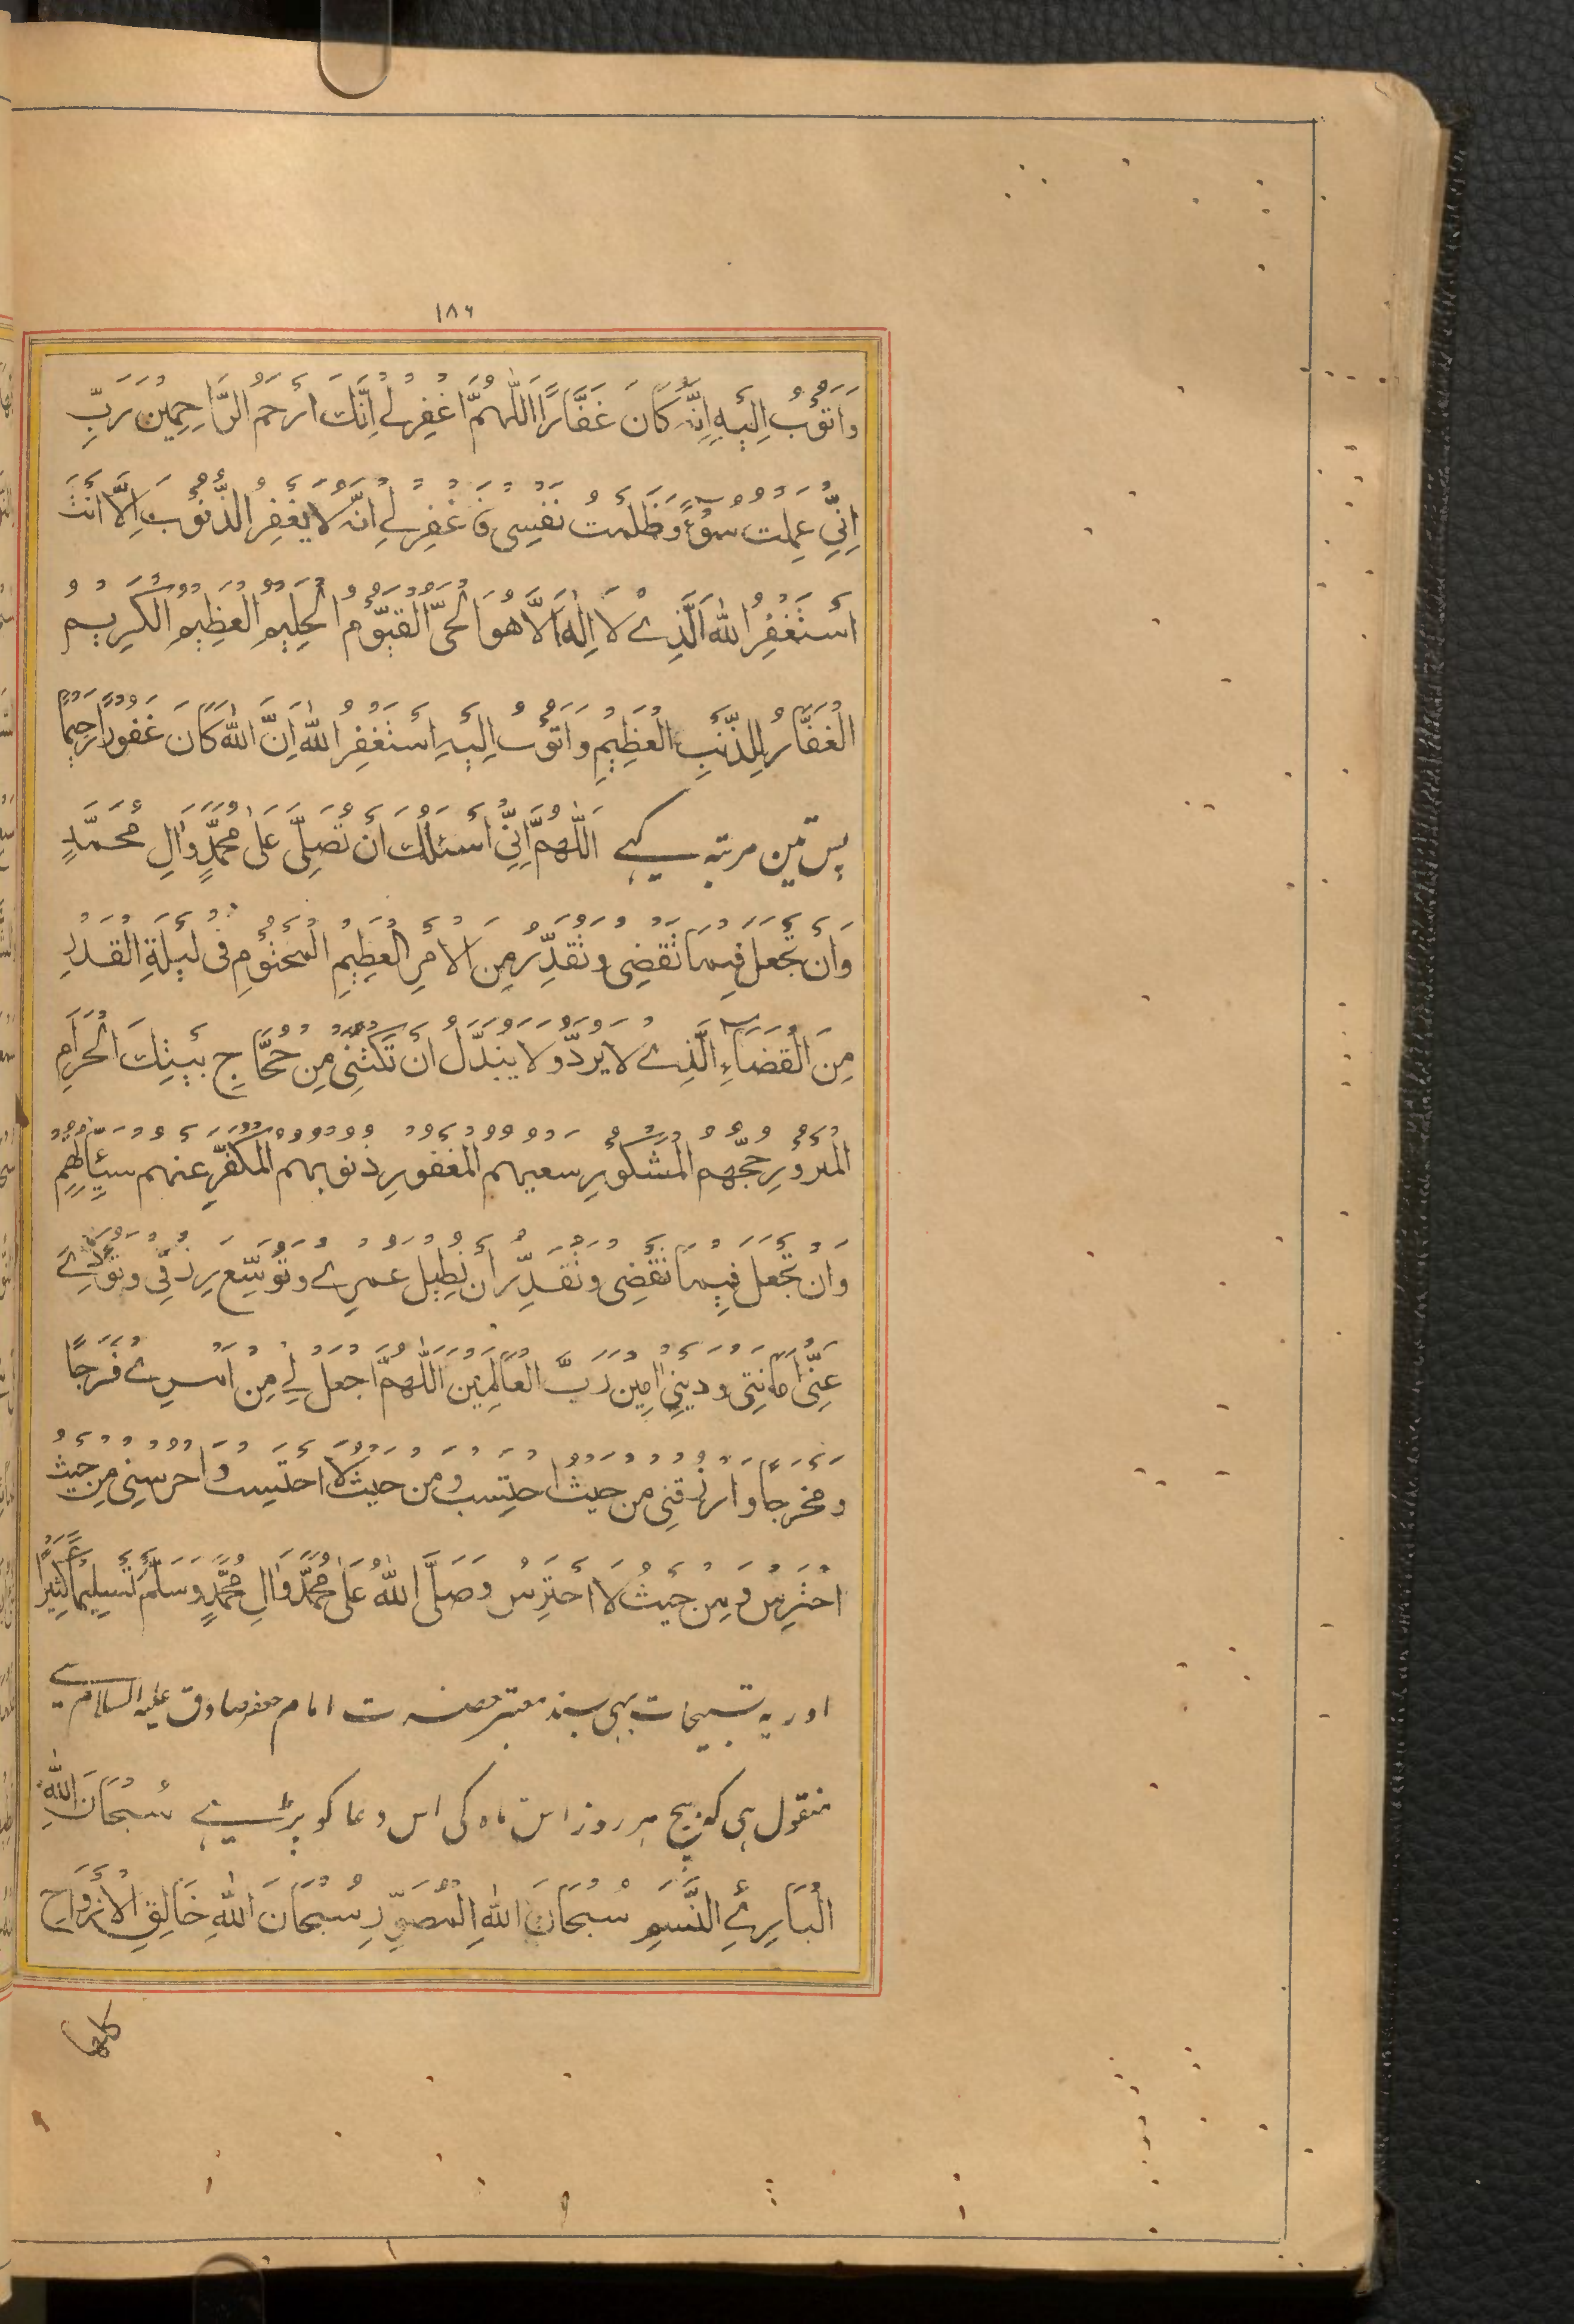 ١٨٦
وَاَتُوْبُ اِلَيْهِ اِنَّهُ كَانَ غَفَّارًا اَللّٰهُمَّ اغْفِرْ لِے اِنَّكَ اَرْحَمُ الرَّاحِمِيْنَ رَبِّ
اِنِّیْ عَمِلْتُ سُوْۤءً وَظَلَمْتُ نَفْسِیْ فَاغْفِرْ لِے اِنَّهُ لَا يَغْفِرُ الذُّنُوْبَ اِلَّا اَنْتَ
اَسْتَغْفِرُ اللّٰهَ الَّذِے لَا اِلٰهَ اِلَّا هُوَ الْحَیُّ الْقَيُّوْمُ الْحَلِيْمُ الْعَظِيْمُ الْكَرِيْمُ
الْغَفَّارُ لِلذَّنْبِ الْعَظِيْمِ وَاَتُوْبُ اِلَيْهِ اَسْتَغْفِرُ اللّٰهَ اِنَّ اللّٰهَ كَانَ غَفُوْرًا رَحِيْمًا
پس تین مرتبہ کہے اَللّٰهُمَّ اِنِّیْ اَسْئَلُكَ اَنْ تُصَلِّیَ عَلٰی مُحَمَّدٍ وَاٰلِ مُحَمَّدٍ
وَاَنْ تَجْعَلَ فِيْمَا تَقْضِیْ وَتُقَدِّرُ مِنَ الْاَمْرِ الْعَظِيْمِ الْمَحْتُوْمِ فِیْ لَيْلَةِ الْقَدْرِ
مِنَ الْقَضَاۤءِ الَّذِے لَا يُرَدُّ وَلَا يُبَدَّلُ اَنْ تَكْتُبَنِیْ مِنْ حُجَّاجِ بَيْتِكَ الْحَرَامِ
الْمَبْرُوْرِ حَجُّهُمْ الْمَشْكُوْرِ سَعْيُهُمْ الْمَغْفُوْرِ ذُنُوْبُهُمْ الْمُكَفَّرِ عَنْهُمْ سَيِّئَاتُهُمْ
وَاَنْ تَجْعَلَ فِيْمَا تَقْضِیْ وَتُقَدِّرُ اَنْ تُطِيْلَ عُمْرِے وَتُوَسِّعَ رِزْقِیْ وَتُؤَدِّےَ
عَنِّیْ اَمَانَتِیْ وَدَيْنِیْ اٰمِيْنَ رَبَّ الْعَالَمِيْنَ اَللّٰهُمَّ اجْعَلْ لِے مِنْ اَمْرِے فَرَجًا
وَمَخْرَجًا وَارْزُقْنِیْ مِنْ حَيْثُ اَحْتَسِبُ وَمِنْ حَيْثُ لَا اَحْتَسِبُ وَاحْرُسْنِیْ مِنْ حَيْثُ
اَحْتَرِسُ وَمِنْ حَيْثُ لَا اَحْتَرِسُ وَصَلَّی اللّٰهُ عَلٰی مُحَمَّدٍ وَاٰلِ مُحَمَّدٍ وَسَلَّمَ تَسْلِيْمًا كَثِيْرًا
اور یہ تسبیحات بھی بسند معتبر حضرت امام جعفر صادق علیہ السلام سے
منقول ہی کہ بیچ ہر روز اس ماہ کی اس دعا کو پڑہے سُبْحَانَ اللّٰهِ
الْبَارِئِ النَّسَمِ سُبْحَانَ اللّٰهِ الْمُصَوِّرِ سُبْحَانَ اللّٰهِ خَالِقِ الْاَزْوَاجِ
كلها